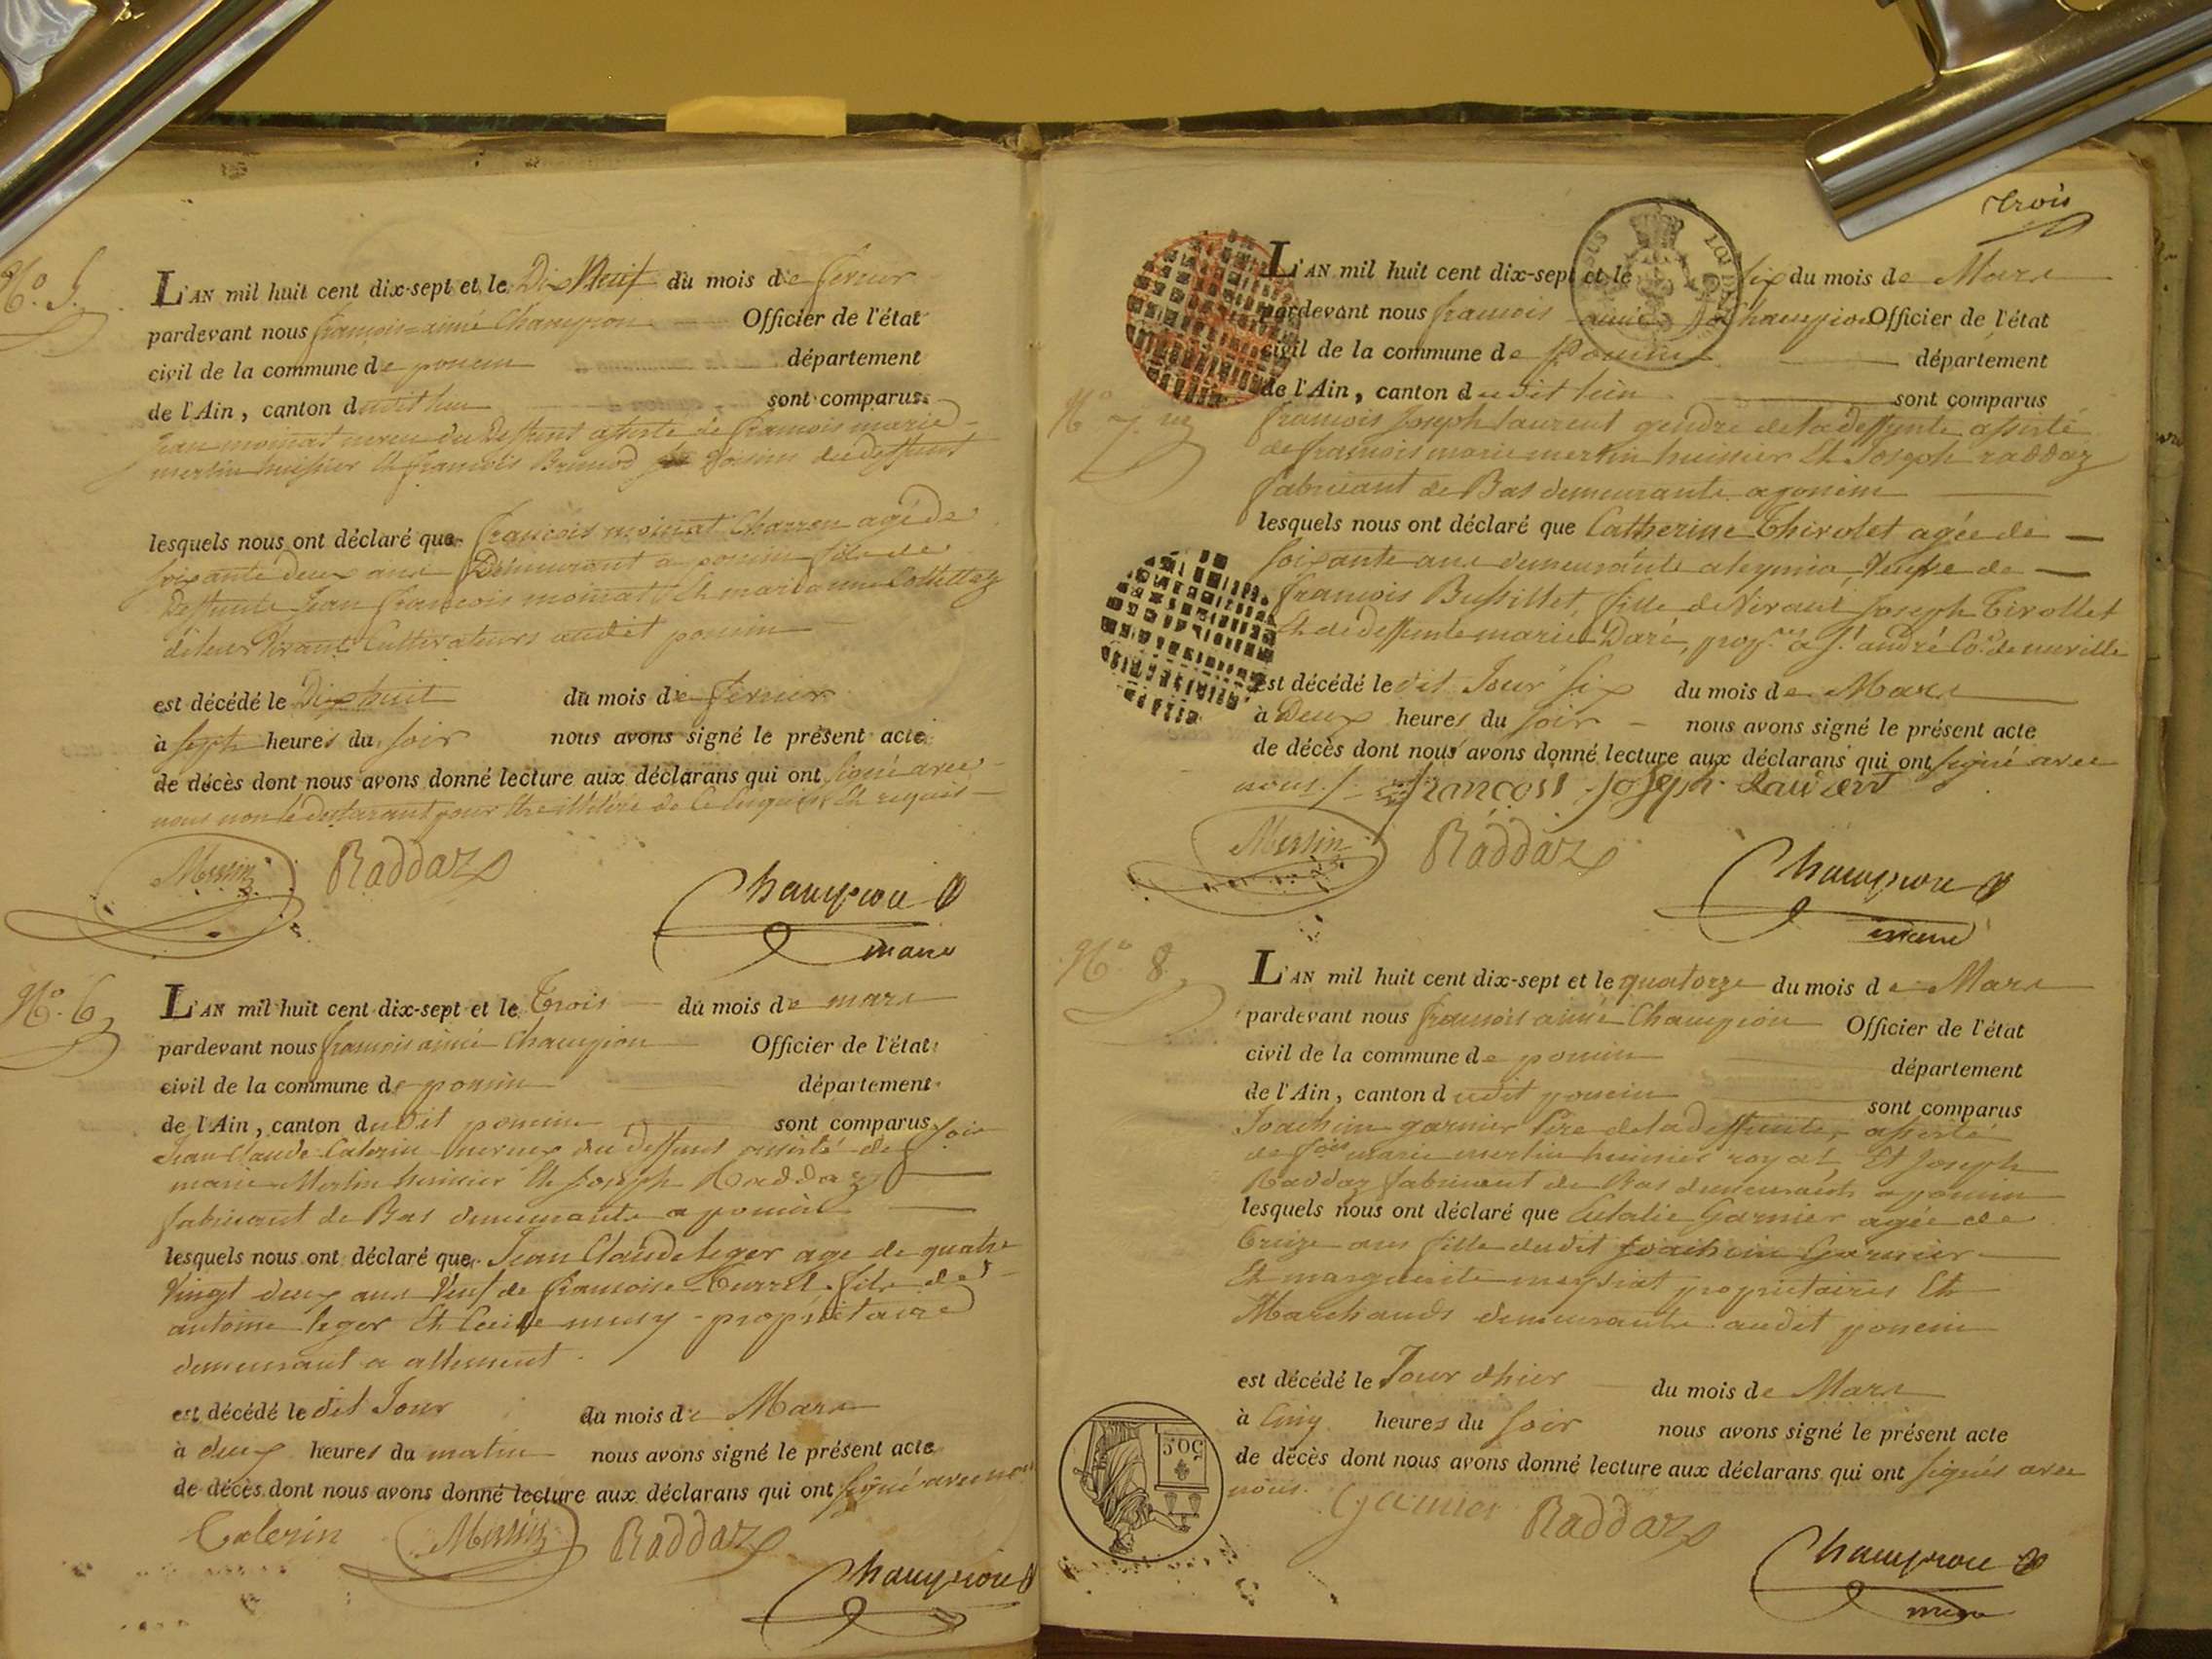 N.° 5.
L'AN mil huit cent dix-sept et le Dix Neuf du mois de fevrier
pardevant nous francois aimé Champion Officier de l'état
civil de la commune de poncin département
de l'Ain, canton dudit lieu sont comparus
Jean moinat neveu du Deffunt assisté de francois marie
merlin huissier Et francois Brunod voisins du deffunt
lesquels nous ont déclaré que francois moinat Charron agé de
soixante deux ans Demeurant a poncin fils de
Deffunts Jean francois moinat Et marianne Collettaz
de leur vivant Cultivateurs audit poncin
est décédé le Dix huit du mois de fevrier
à sept heures du soir nous avons signé le présent acte
de décès dont nous avons donné lecture aux déclarans qui ont signé avec
nous non le declarant pour Etre illiteré de ce Enquis Et requis
Merlin Raddaz
Champion
maire
N.° 6
L'AN mil huit cent dix-sept et le Trois du mois de mars
pardevant nous francois aimé Champion Officier de l'état
civil de la commune de poncin département
de l'Ain, canton dudit poncin sont comparus
Jean Claude Calerin neveux du deffunt assisté de fois
marie Merlin huissier Et Joseph Raddaz
fabricant de Bas demeurants a poncin
lesquels nous ont déclaré que Jean Claude leger age de quatre
Vingt deux ans Veuf de francoise Turrel fils de
antoine leger Et Cecile musy propriétaire
demeurant a allement
est décédé le dit Jour du mois de Mars
à deux heures du matin nous avons signé le présent acte
de décès dont nous avons donné lecture aux déclarans qui ont signé avec nous
Calerin Merlin Raddaz
Champion
trois
N.° 7
L'AN mil huit cent dix-sept et le six du mois de Mars
pardevant nous francois aimé Champion Officier de l'état
civil de la commune de Poncin département
de l'Ain, canton dudit lieu sont comparus
francois Joseph laurent gendre de la deffunte assisté
de francois marie merlin huissier Et Joseph raddaz
fabricant de Bas demeurants a poncin
lesquels nous ont déclaré que Catherine Thirolet agée de
soixante ans demeurante a leymia Veuve de
francois Bussillet, fille de Vivant Joseph Tirollet
Et de deffunte marie Daré, prop.res à S.t andré Co.e de neuville
est décédé le dit Jour six du mois de Mars
à Deux heures du soir nous avons signé le présent acte
de décès dont nous avons donné lecture aux déclarans qui ont signé avec
nous /. françois joseph laurent
Merlin Raddaz
Champion
maire
N.° 8
L'AN mil huit cent dix-sept et le quatorze du mois de Mars
pardevant nous francois aimé Champion Officier de l'état
civil de la commune de poncin département
de l'Ain, canton dudit poncin sont comparus
Joachim garnier Père de la deffunte, assisté
de fois marie merlin huissier royal Et Joseph
Raddaz fabricant de Bas demeurants a poncin
lesquels nous ont déclaré que Eulalie Garnier agée de
treize ans fille dudit joachim Garnier
Et marguerite meyssiat proprietaires Et
Marchands demeurants audit poncin
est décédé le Jour d'hier du mois de Mars
à Cinq heures du soir nous avons signé le présent acte
de décès dont nous avons donné lecture aux déclarans qui ont signés avec
nous.
50C
Garnier Raddaz
Champion
maire